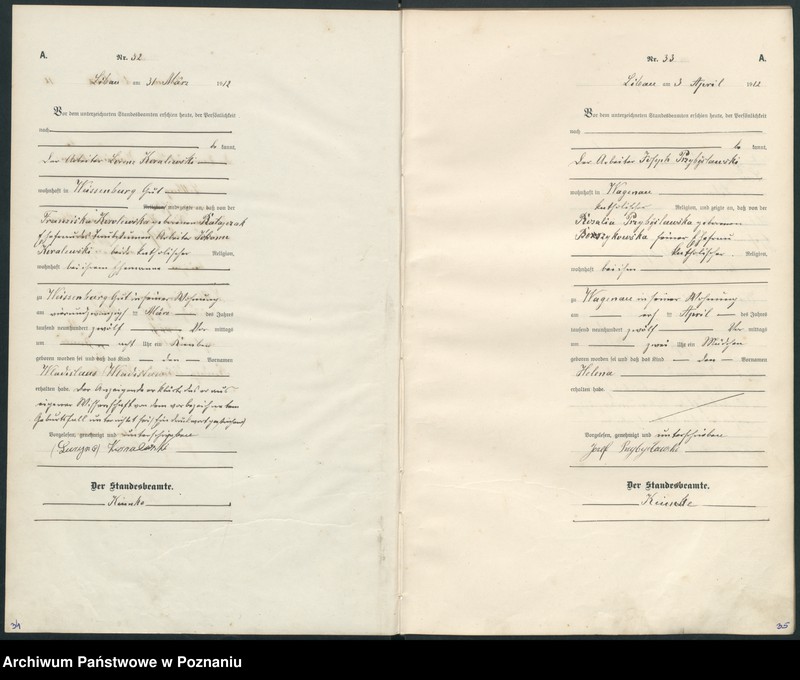 A.
Nr. 32
Libau am 31 März 1912
Vor dem unterzeichneten Standesbeamten erschien heute, der Persönlichkeit
nach
be kannt,
Der Arbeiter Kowalewski
wohnhaft in Weissenburg Gut
Religion, und zeigte an, daß von der
Franziska Kowalewska geborenen Ratajczak
Ehefrau des Arbeiter Johann
Kowalewski beide katholischer Religion,
wohnhaft bei ihrem Ehemanne
zu Weissenburg Gut in seiner Wohnung
am vierundzwanzigsten März des Jahres
tausend neunhundert zwölf Vor mittags
um acht Uhr ein Knabe
geboren worden sei und daß das Kind den Vornamen
Wladislaus
erhalten habe. Der Anzeigende erklärte daß er aus
eigener Wissenschaft von dem vorbezeichneten
Geburtsfall unterrichtet sei
Vorgelesen, genehmigt und unterschrieben
Der Standesbeamte.
34
Nr. 33
A.
Libau am 3 April 1912
Vor dem unterzeichneten Standesbeamten erschien heute, der Persönlichkeit
nach
be kannt,
Der Arbeiter Joseph Przybyslawski
wohnhaft in Wagenau
katholischer Religion, und zeigte an, daß von der
Rosalia Przybyslawska geborenen
seiner Ehefrau
katholischer Religion,
wohnhaft bei ihm
zu Wagenau in seiner Wohnung
am April des Jahres
tausend neunhundert zwölf Vor mittags
um zwei Uhr ein Mädchen
geboren worden sei und daß das Kind den Vornamen
Helena
erhalten habe.
Vorgelesen, genehmigt und unterschrieben
Josef Przybyslawski
Der Standesbeamte.
35
Archiwum Państwowe w Poznaniu